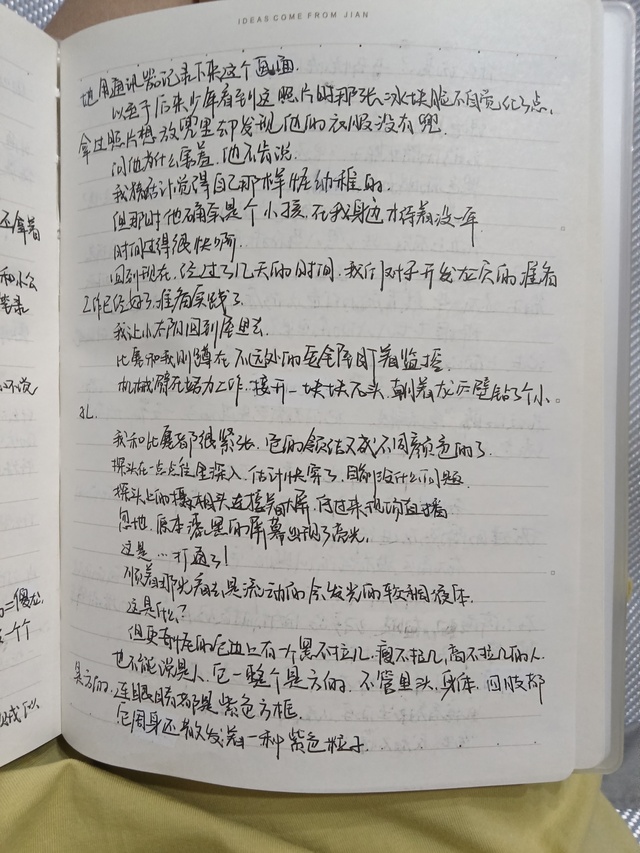 IDEAS COME FROM JIAN
地用通讯器记录下来这个画面.
以至于后来少年看到这照片时那张冰块脸不自觉化了点,
拿过照片想放兜里却发现他的衣服没有兜.
问他为什么害羞.他不肯说.
我猜估计觉得自己那样怪幼稚的.
但那时他确实是个小孩.在我身边才待着没一年.
时间过得很快啊.
回到现在.经过了几天的时间.我们对于开发龙灰的准备
工作已经好了.准备实践了.
我让小本阴回到屋里去.
比雷和我则蹲在不远处的安全屋盯着监控.
机械臂在努力工作.搬开一块块石头.朝着龙灰壁钻了个小
孔.
我和比雷都很紧张.它的领结又成不同颜色的了.
探头在一点点往里深入.估计快穿了.目前没什么问题.
探头上的摄相头连接着大屏.传过来现场直播
忽地.原本漆黑的屏幕出现了亮光.
这是…打通了!
顺着那光看去.是流动的会发光的较稠液体.
这是什么?
但更奇怪的它边上有一个黑不拉几.瘦不拉几.高不拉几的人.
也不能说是人.它一整个是方的.不管是头.身体.四肢都
是方的.连眼睛都是紫色方框.
它周身还散发着一种紫色粒子.
还拿着
和小么
等录
不说
一个个